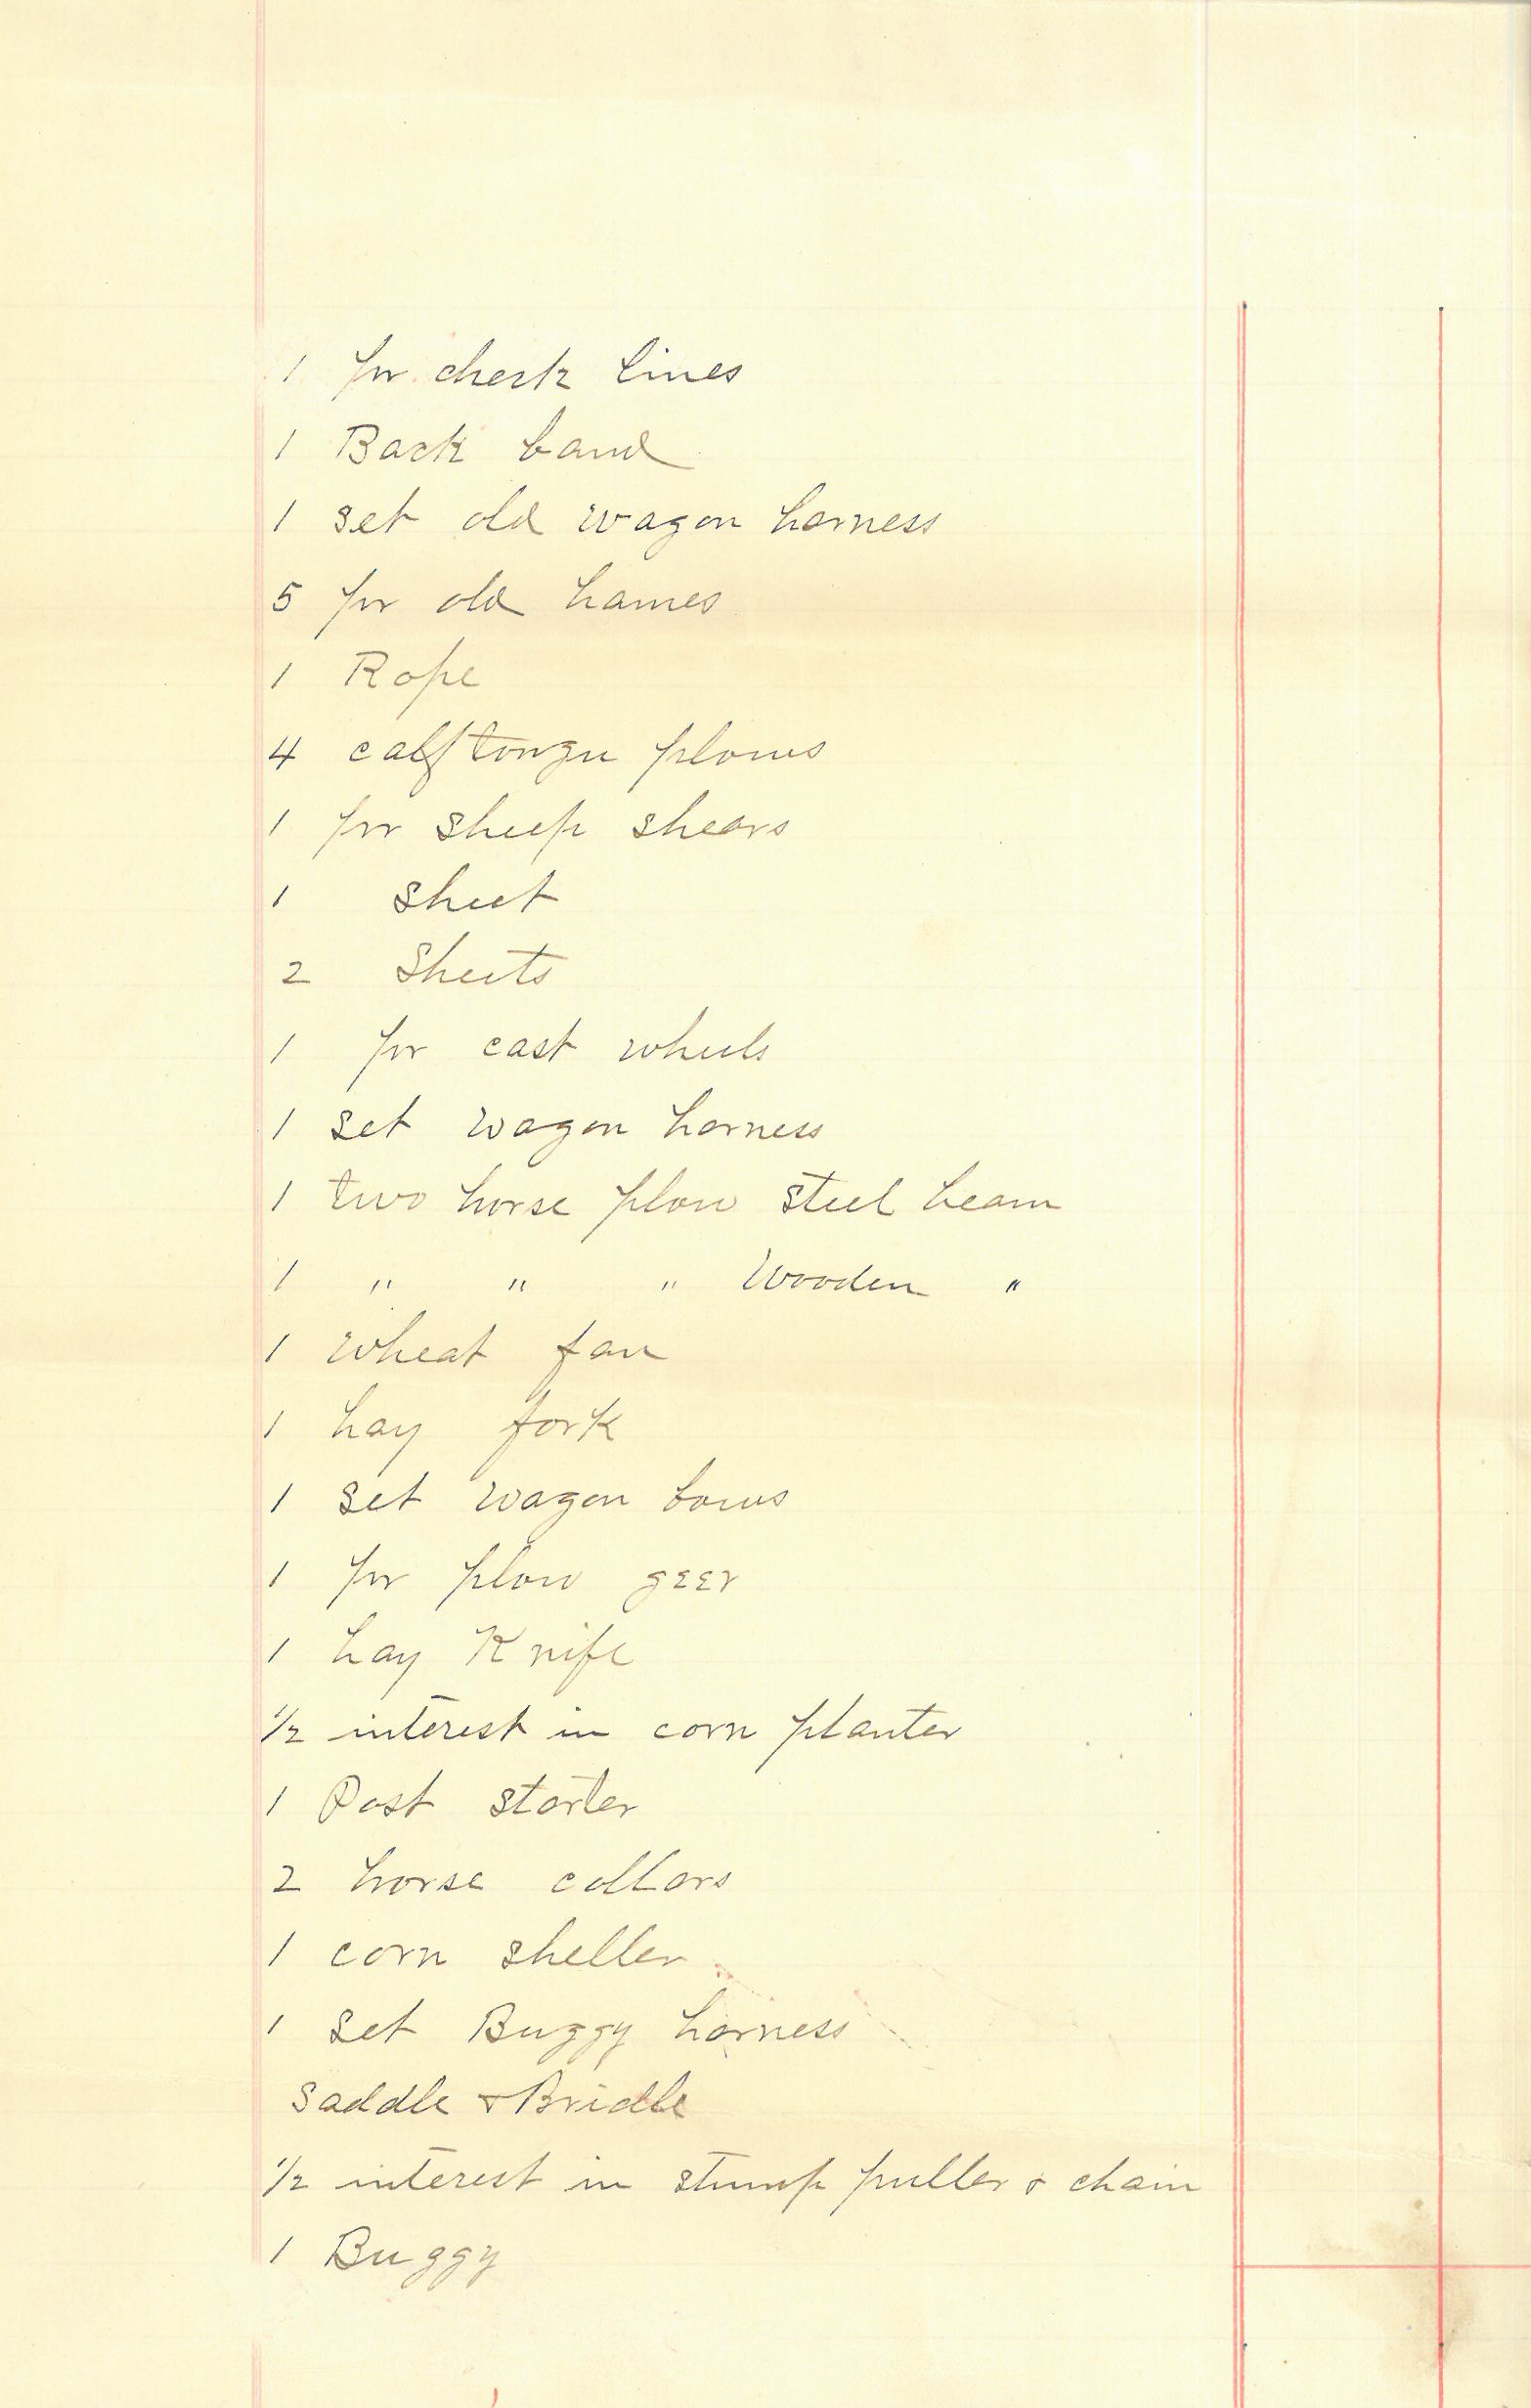 1 pr check lines
1 Back band
1 set old wagon harness
5 pr old hames
1 Rope
4 calf tongu plows
1 pr sheep shears
1 Sheet
2 Sheets
1 pr cast wheels
1 set wagon harness
1 two horse plow steel beam
1 " " " Wooden "
1 wheat fan
1 hay fork
1 set wagon bows
1 pr plow geer
1 hay Knife
1/2 interest in corn planter
1 Post starter
2 horse collars
1 corn sheller
1 set Buggy harness
Saddle & Bridle
1/2 interest in stump puller & chain
1 Buggy